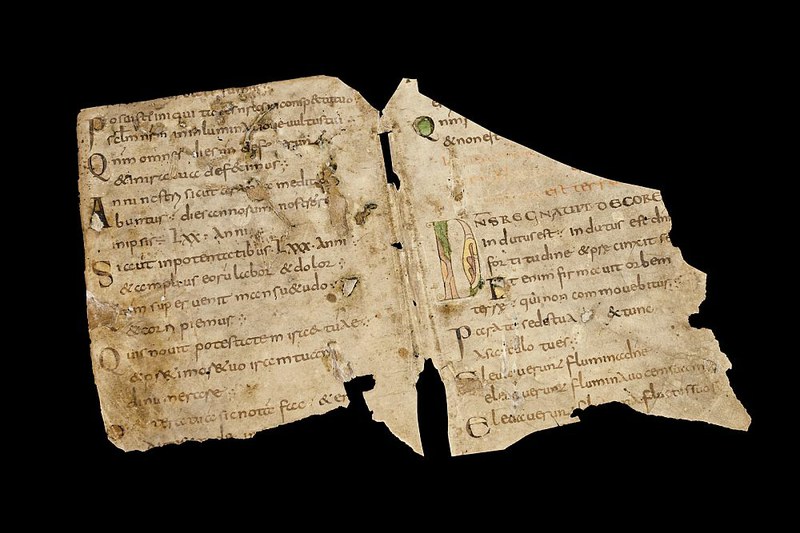 Posuisti iniquitates nr̄as in conspectu tuo
sc̄lm nr̄m in inluminatione uultus tui
Qm̄ omnes dies nr̄i defe
& in ira tua defecimus
anni nostri sicut aranea medita
Abuntur dies annorum nostrorū
in ipsis LXX Anni
Si autē in potentatibus LXXX Anni
& amplius eorū labor & dolor
qm̄ superuenit mansu&udo
& corripiemur
Quis nouit potestatem irae tuae
& prae timore tuo iram tuam
dinumerare
Dexterā tuā sic notā fac & er
Q
nr̄
& non est
DN̄S REGNAUIT DECORE
indutus est indutus est dn̄
fortitudine & praecinxit s
Et enim firmauit orbem
terrae qui non commouebitur
Parata sedes tua & tunc
A saeculo tu es
Eleuauerunt flumina dn̄e
eleuauerunt flumina uocem suam
Eleuauerunt fluctus suos